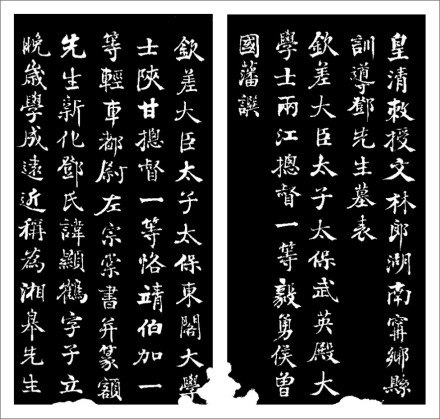 皇清敕授文林郎湖南甯鄉縣
訓導鄧先生墓表
欽差大臣太子太保武英殿大
學士兩江摠督一等毅勇侯曾
國藩譔
欽差大臣太子太保東閣大學
士陝甘摠督一等恪靖伯加一
等輕車都尉左宗棠書并篆額
先生新化鄧氏諱顯鶴字子立
晚歲學成遠近稱為湘皋先生